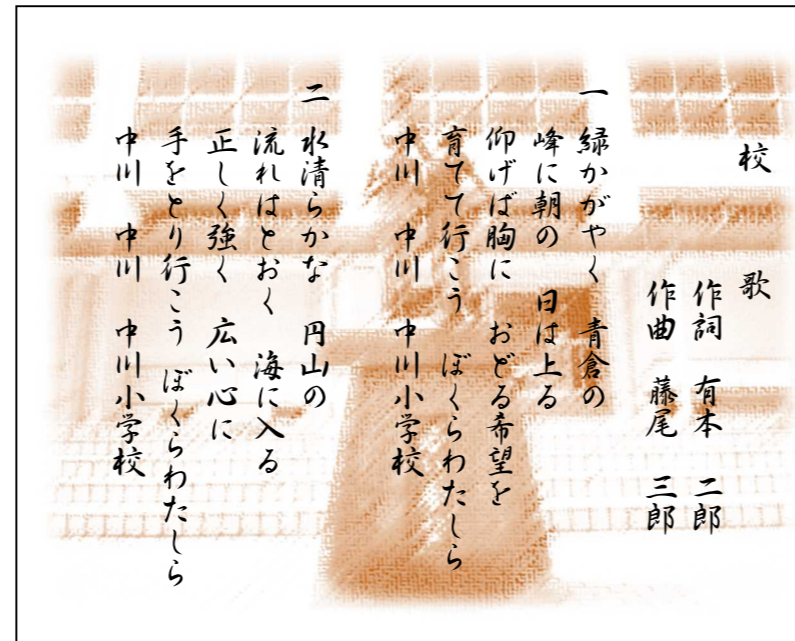 校 歌
作詞 有本 二郎
作曲 藤尾 三郎
一 緑かがやく 青倉の
峰に朝の 日は上る
仰げば胸に おどる希望を
育てて行こう ぼくらわたしら
中川 中川 中川小学校
二 水清らかな 円山の
流れはとおく 海に入る
正しく強く 広い心に
手をとり行こう ぼくらわたしら
中川 中川 中川小学校